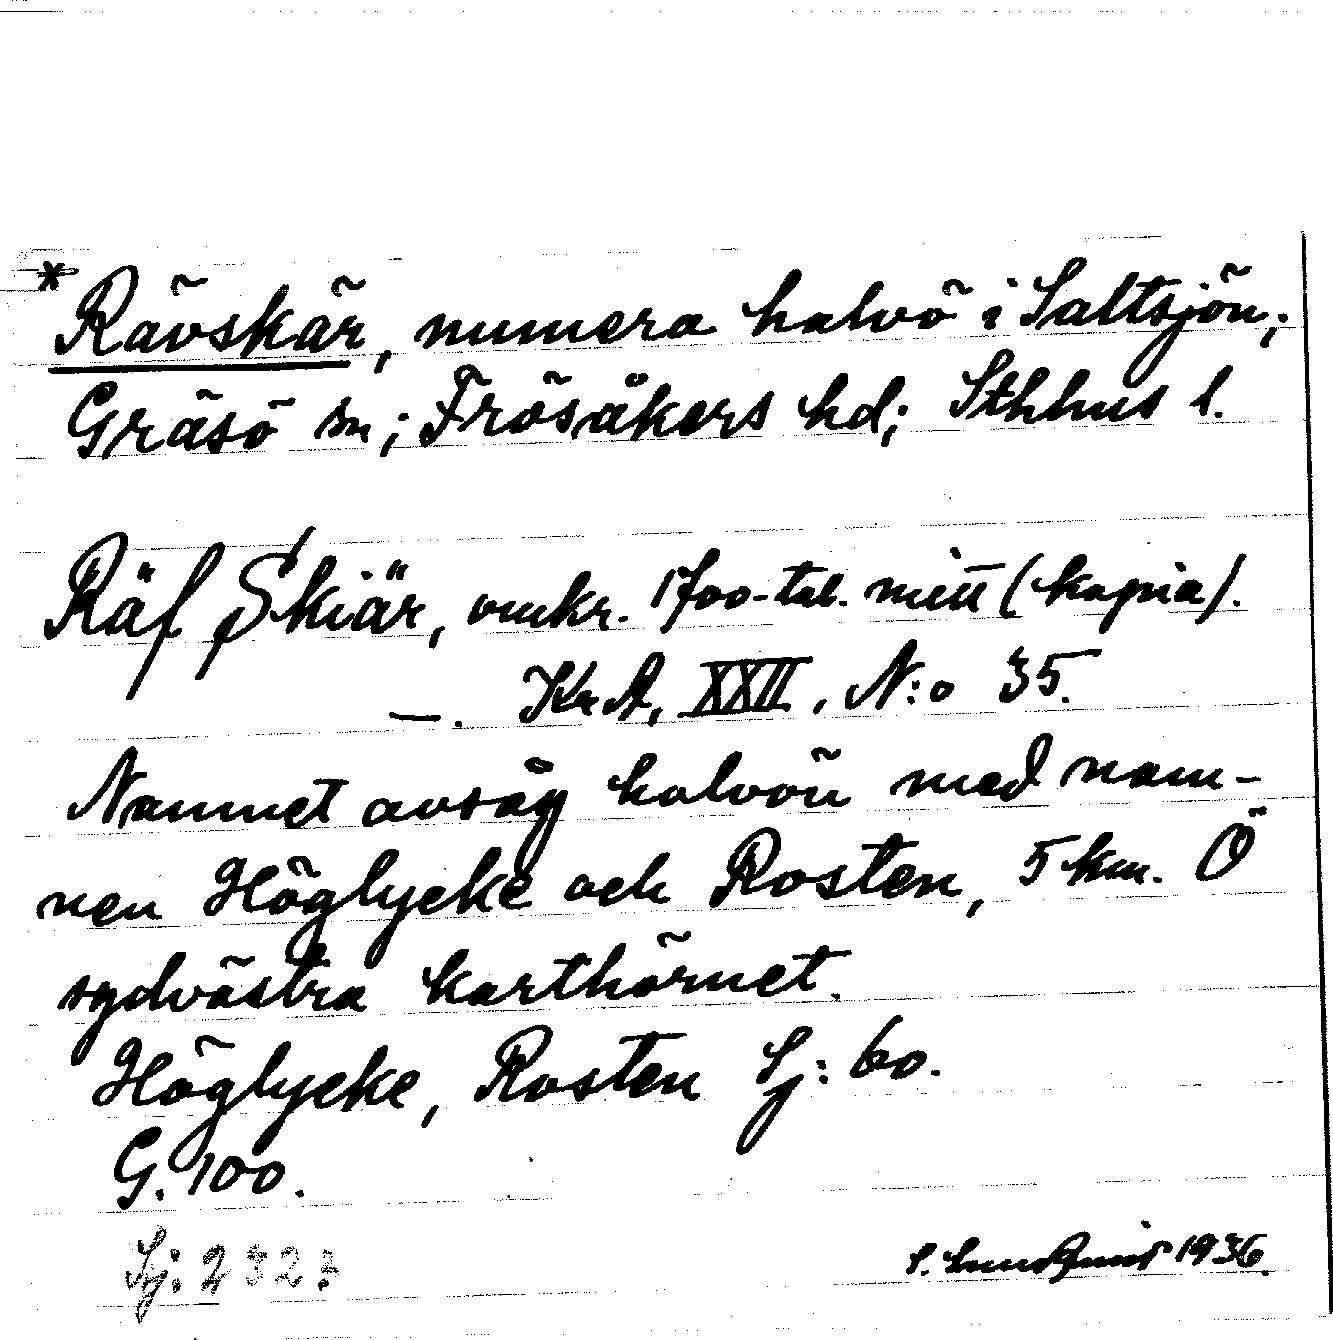 * Rävskär, numera halvö i Saltsjön;
Gräsö sn; Frösåkers hd; Sthlms l.
Räf Skiär, omkr. 1700-tal. mitt (kopia).
—. KrA, XXII, N:o 35.
Namnet avsåg halvön med nam-
nen Höglycke och Rosten, 5 km. Ö
sydvästra karthörnet.
Höglycke, Rosten Sj: 60.
G. 100.
Sj: 2323
S. Lundquist 1936.